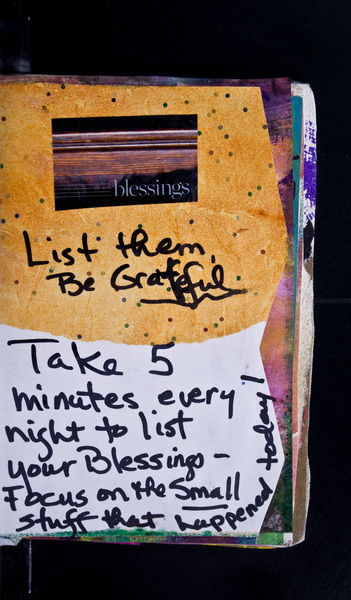 blessings
List them.
Be Grateful
Take 5
minutes every
night to list
your Blessings -
Focus on the Small
stuff that happened today!